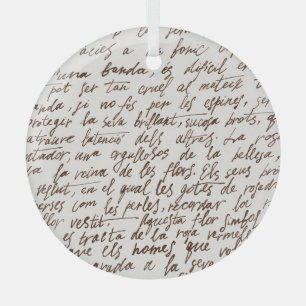 àcies a un fònic
una banda, és difícil en
pot ser tan cruel al mateix
banda, si no fos per les espines, se
protegir la seva brillant, sucosa brots, q
atraure l'atenció dels altres. La rosa
tador, una orgullosos de la bellesa,
la reina de les flors. Els seus pro
vestit, en el qual les gotes de rosada
erses com les perles, recordar la
flor vestit. Aquesta flor simbol
es tracta de la roja vermel
que els homes que vol
vada a la seva